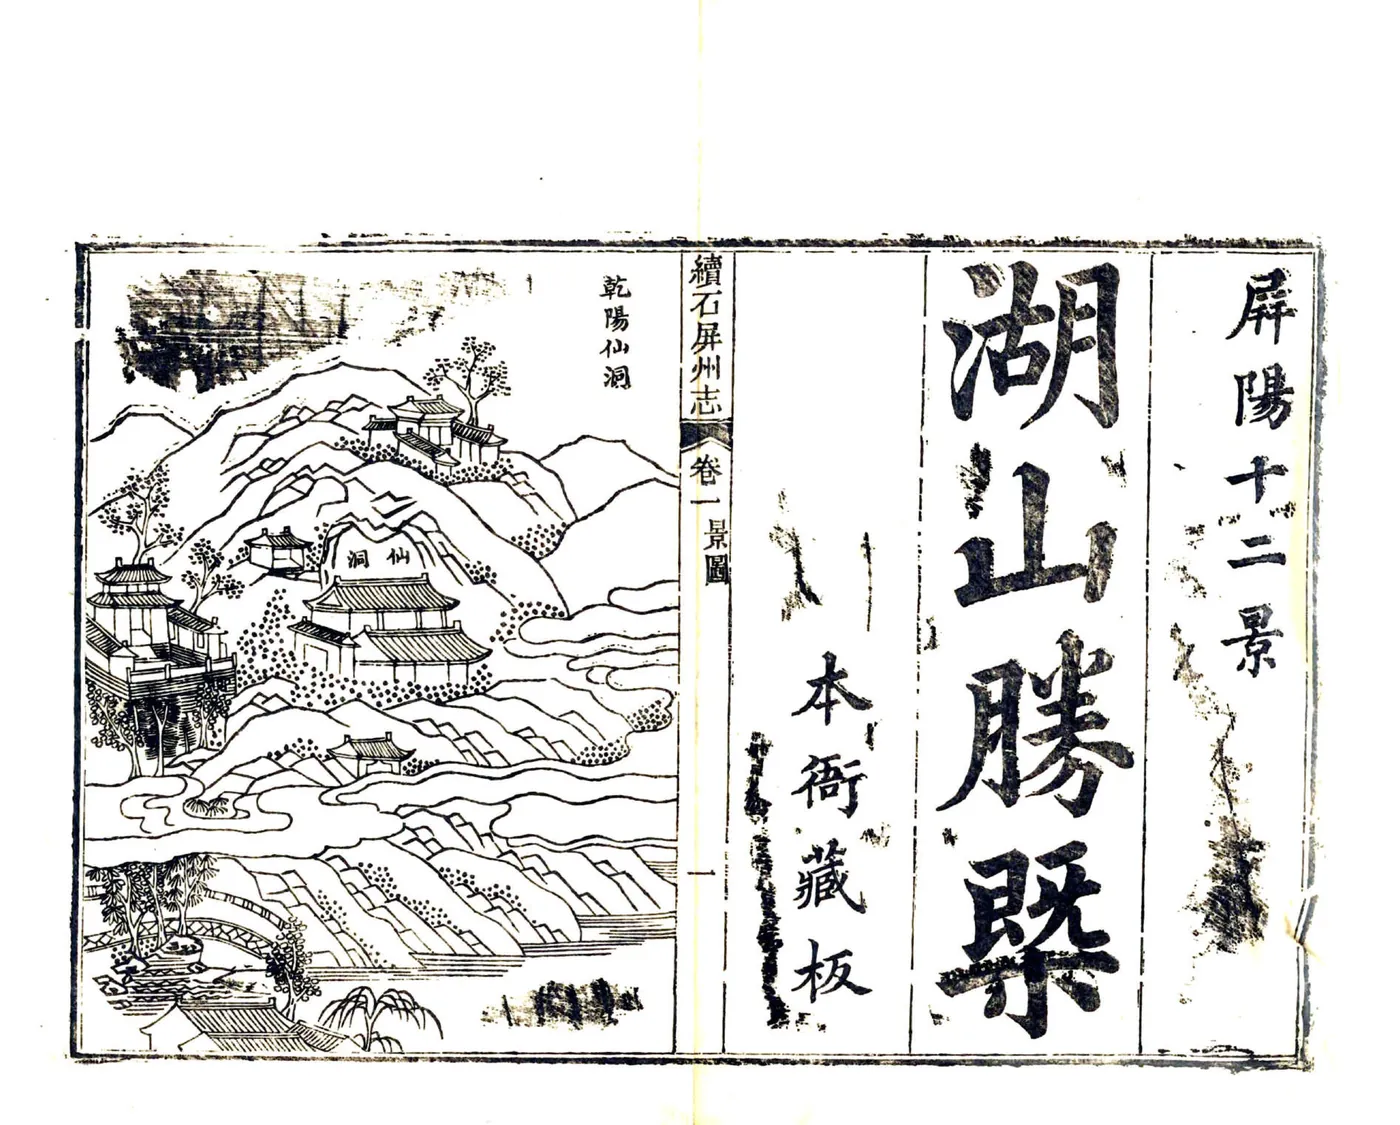 屏陽十二景
湖山勝槩
本衙藏板
續石屏州志
卷一
景圖
一
乾陽仙洞
仙洞